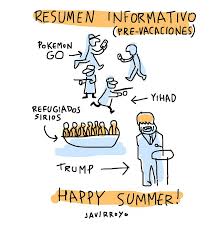 RESUMEN INFORMATIVO
(PRE-VACACIONES)
POKEMON
GO
YIHAD
REFUGIADOS
SIRIOS
TRUMP
HAPPY SUMMER!
JAVIRROYO